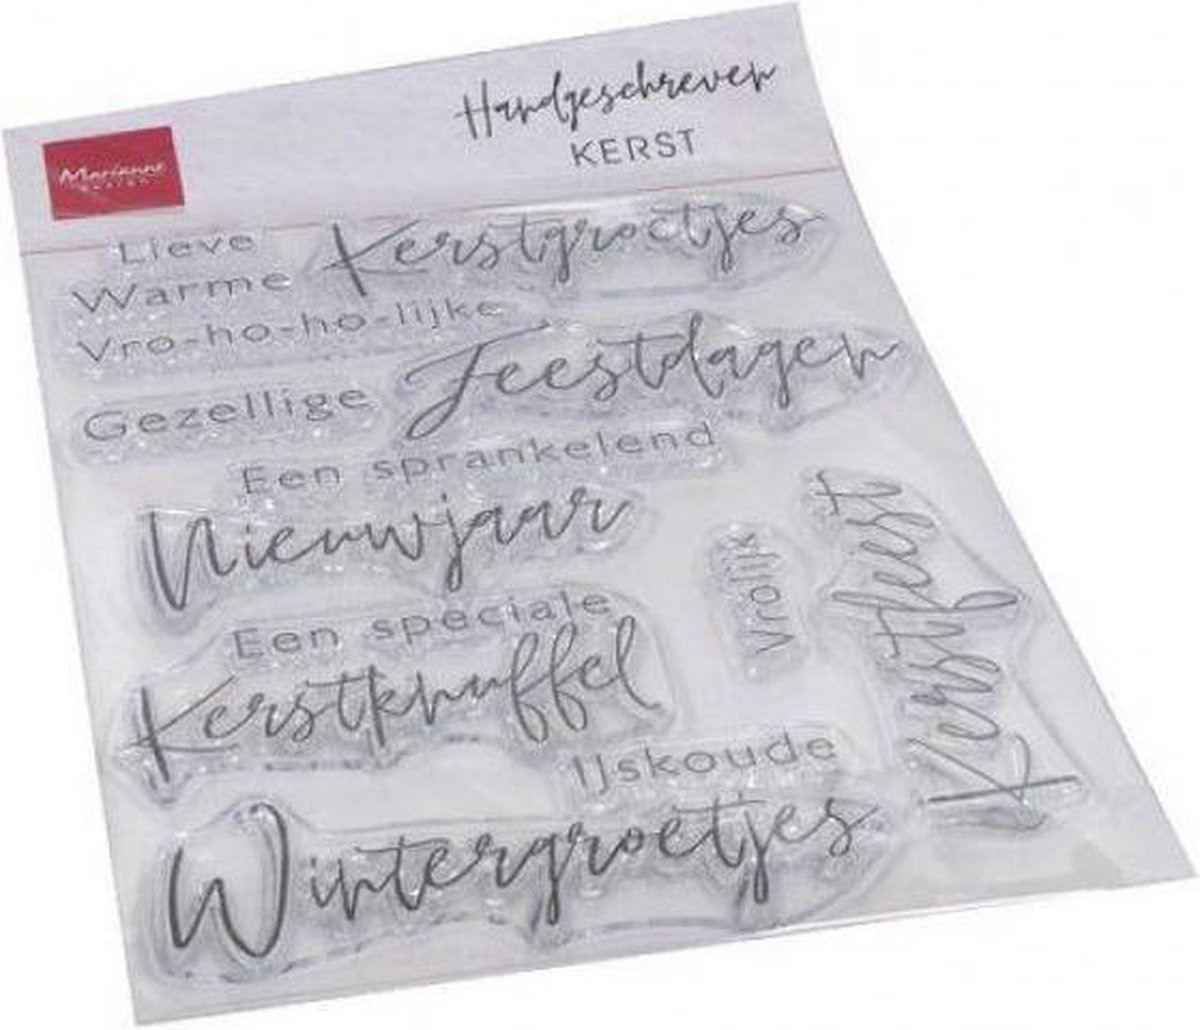 Handgeschreven
KERST
Marianne
DESIGN
Lieve
Kerstgroetjes
Warme
Vro-ho-ho-lijke
Feestdagen
Gezellige
Een sprankelend
Nieuwjaar
Vrolijk
Kerstfeest
Een speciale
Kerstknuffel
IJskoude
Wintergroetjes